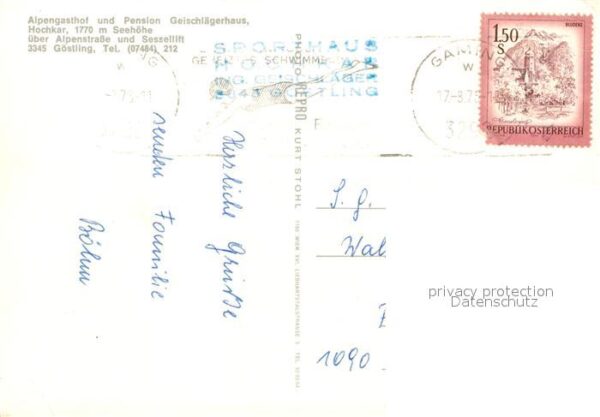 Alpengasthof und Pension Geischlägerhaus,
Hochkar, 1770 m Seehöhe
über Alpenstraße und Sessellift
3345 Göstling, Tel. (07484) 212
SPORTHAUS
ING. GEISCHLÄGER
3345 GÖSTLING
SCHWIMME
GAMING
17-3.75
BLUDENZ
1.50
S
REPUBLIK ÖSTERREICH
Herzliche Grüße
senden Familie
Böhm
PHOTO-REPRO KURT STOHL
S. g.
Wal
1090
privacy protection
Datenschutz